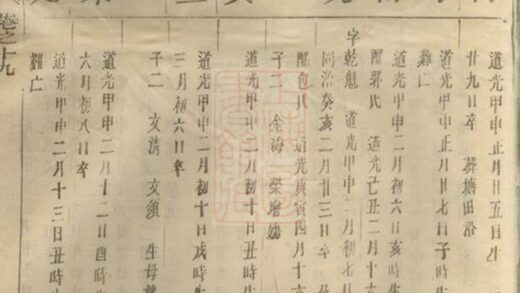 道光甲申正月廿五日生
廿九日卒 葬塘田
道光甲申正月廿七日子時生
難亡
道光甲申二月初六日亥時生
配郭氏 道光己丑二月十六
字乾魁 道光甲申二月初七
同治癸亥二月廿三日卒
配包氏 道光庚寅四月十六
子二 金海 榮增
道光甲申二月初十日生
道光甲申二月初十日戌時生
三月初六日卒
子二 文清 文須 生母
道光甲申二月十二日酉時生
六月初八日卒
道光甲申二月十三日丑時
難亡
卷之